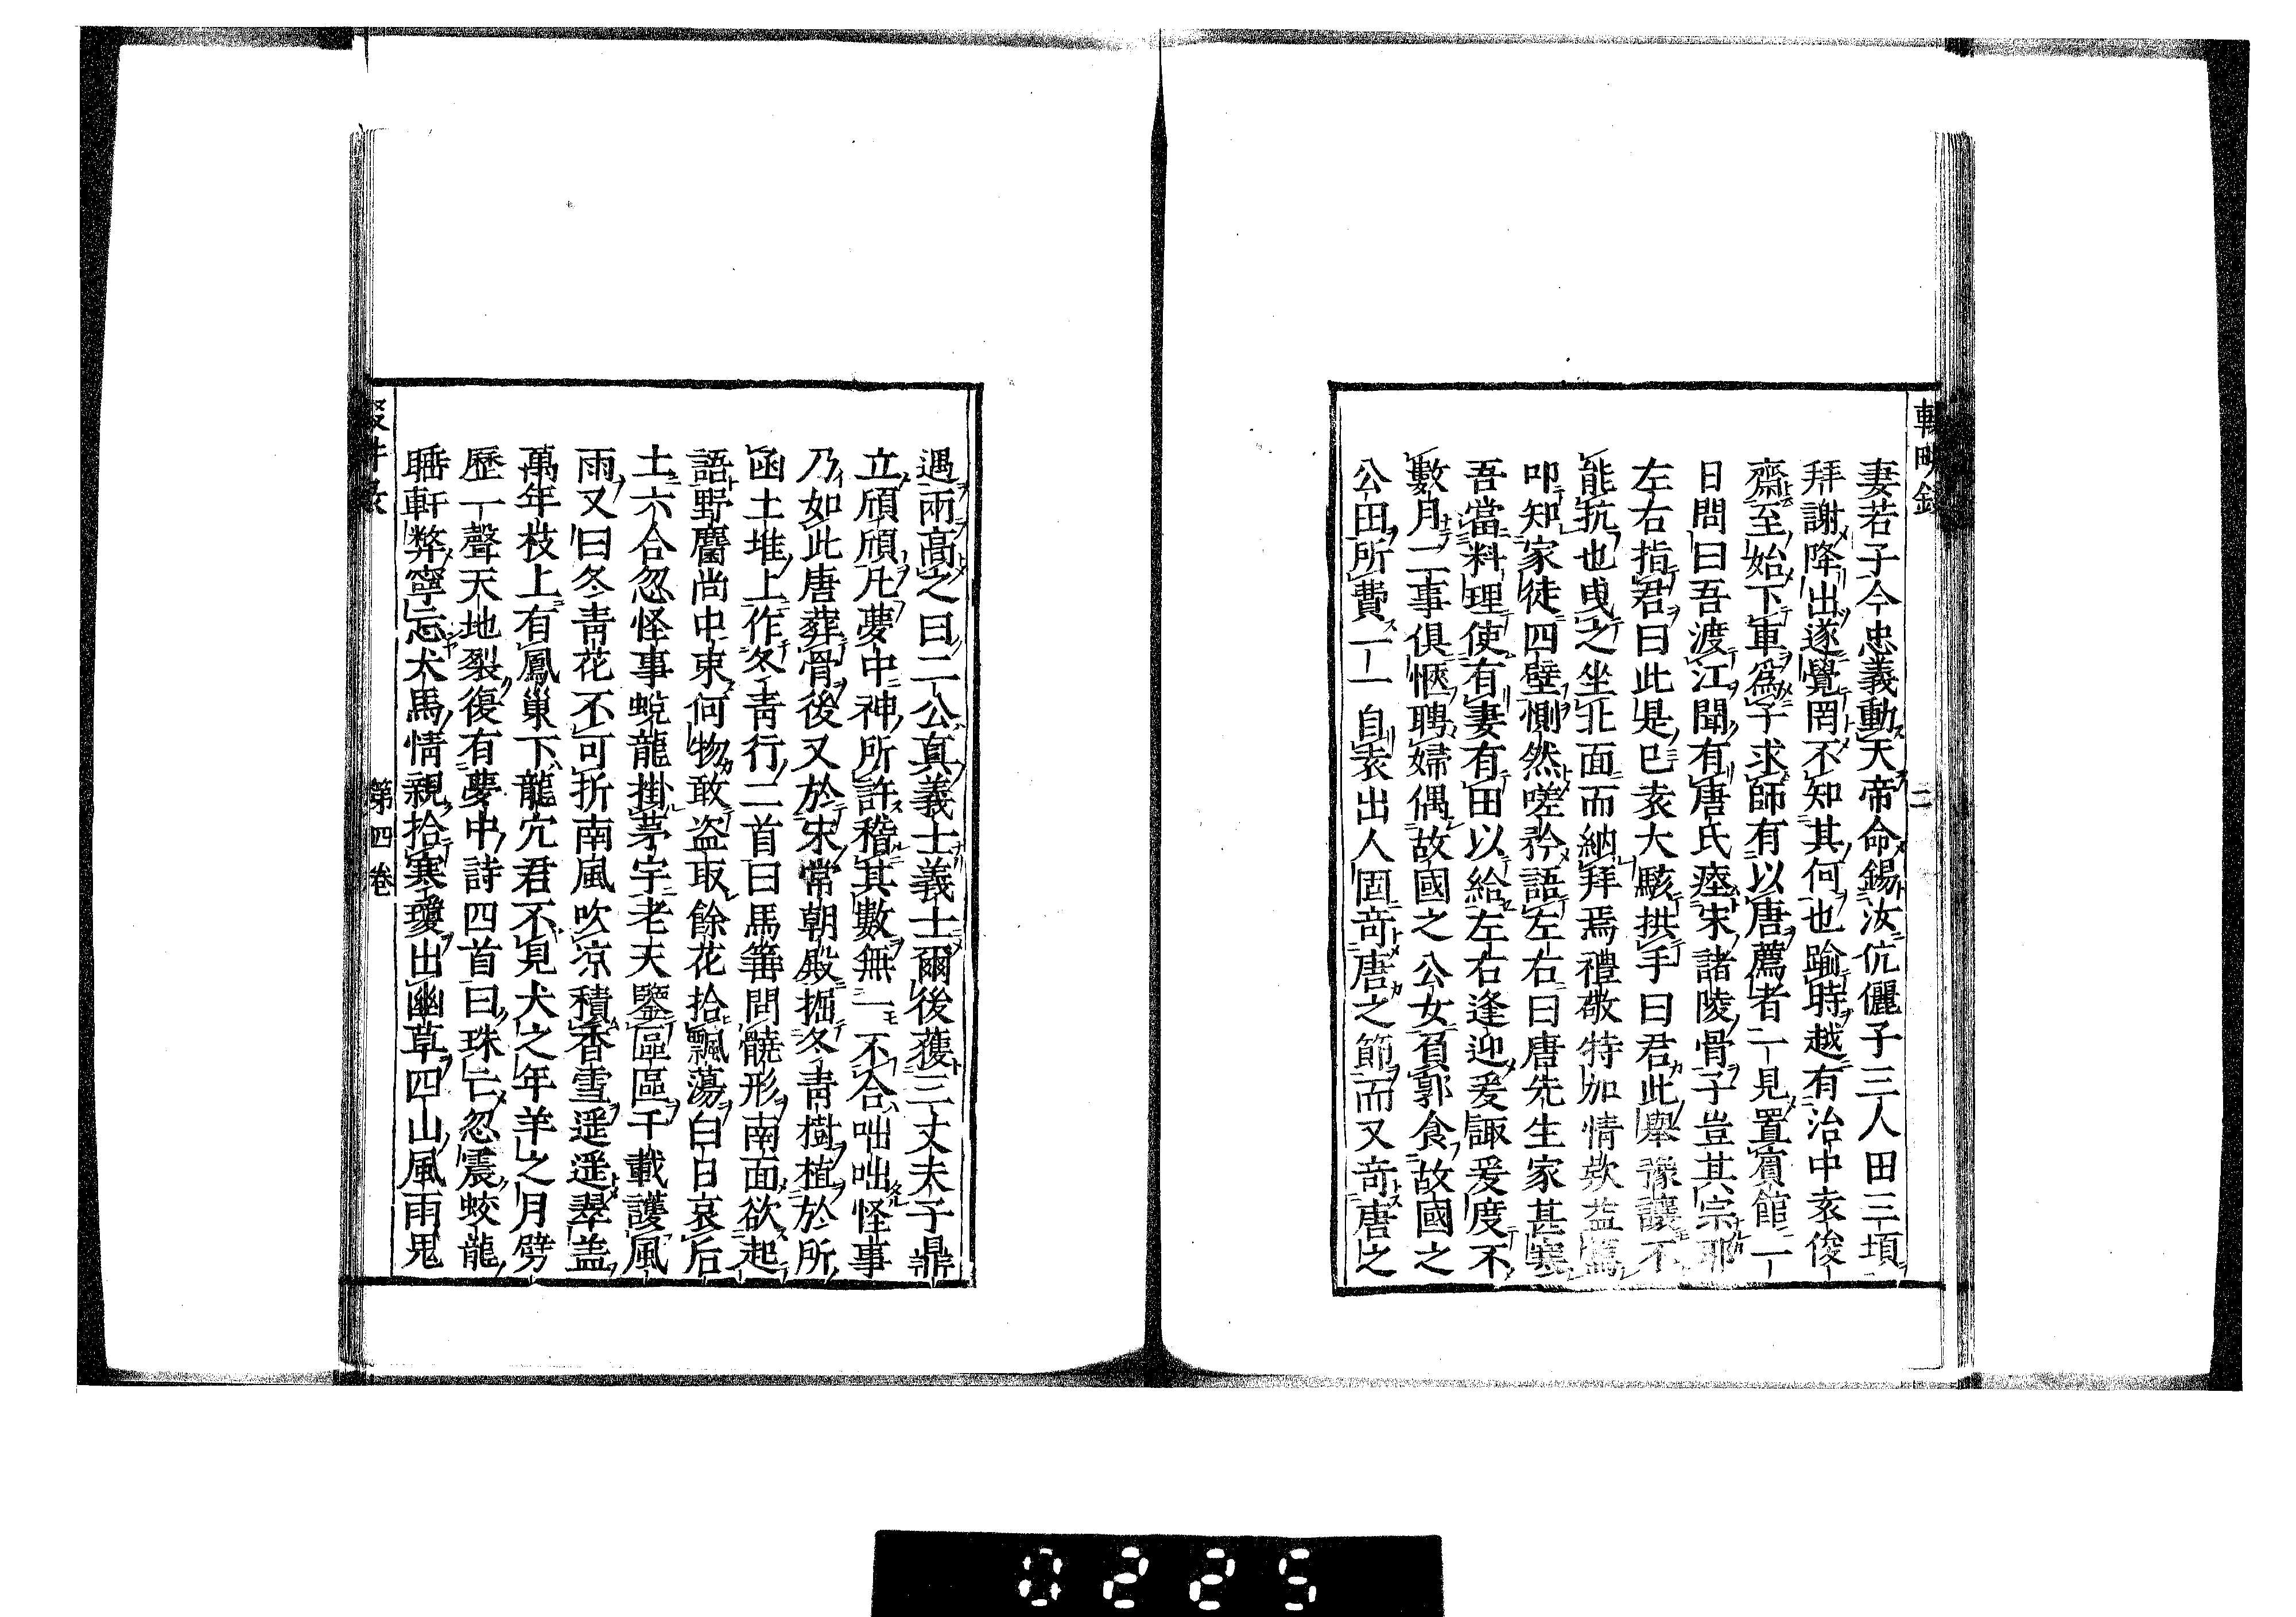 輟畊錄
二
妻若子今忠義動天帝命錫汝伉儷子三人田三頃
拜謝降出遂覺罔不知其何也踰時越有治中袁俊
齋至始下車爲子求師有以唐薦者一見置賓館一
日問曰吾渡江聞有唐氏瘞宋諸陵骨子豈其宗耶
左右指君曰此是已袁大駭拱手曰君此舉豫讓不
能抗也曳之坐北面而納拜焉禮敬特加情欵益篤
叩知家徒四壁惻然嗟矜語左右曰唐先生家甚寒
吾當料理使有妻有田以給左右逢迎爰諏爰度不
數月二事俱愜聘婦偶故國之公女負郭食故國之
公田所費一一自袁出人固奇唐之節而又奇唐之
遇兩高之曰二公真義士義士爾後獲三丈夫子鼎
立頎頎凡夢中神所許稽其數無一不合咄咄怪事
乃如此唐葬骨後又於宋常朝殿掘冬青樹植於所
函土堆上作冬青行二首曰馬箠問髐形南面欲起
語野麕尚屯束何物敢盗取餘花拾飄蕩白日哀后
土六合忽怪事蛻龍掛茅宇老天鑒區區千載護風
雨又曰冬青花不可折南風吹凉積香雪遥遥翠盖
萬年枝上有鳳巢下龍穴君不見犬之年羊之月劈
歷一聲天地裂復有夢中詩四首曰珠亡忽震蛟龍
睡軒弊寧忘犬馬情親拾寒瓊出幽草四山風雨鬼
第四卷
0225